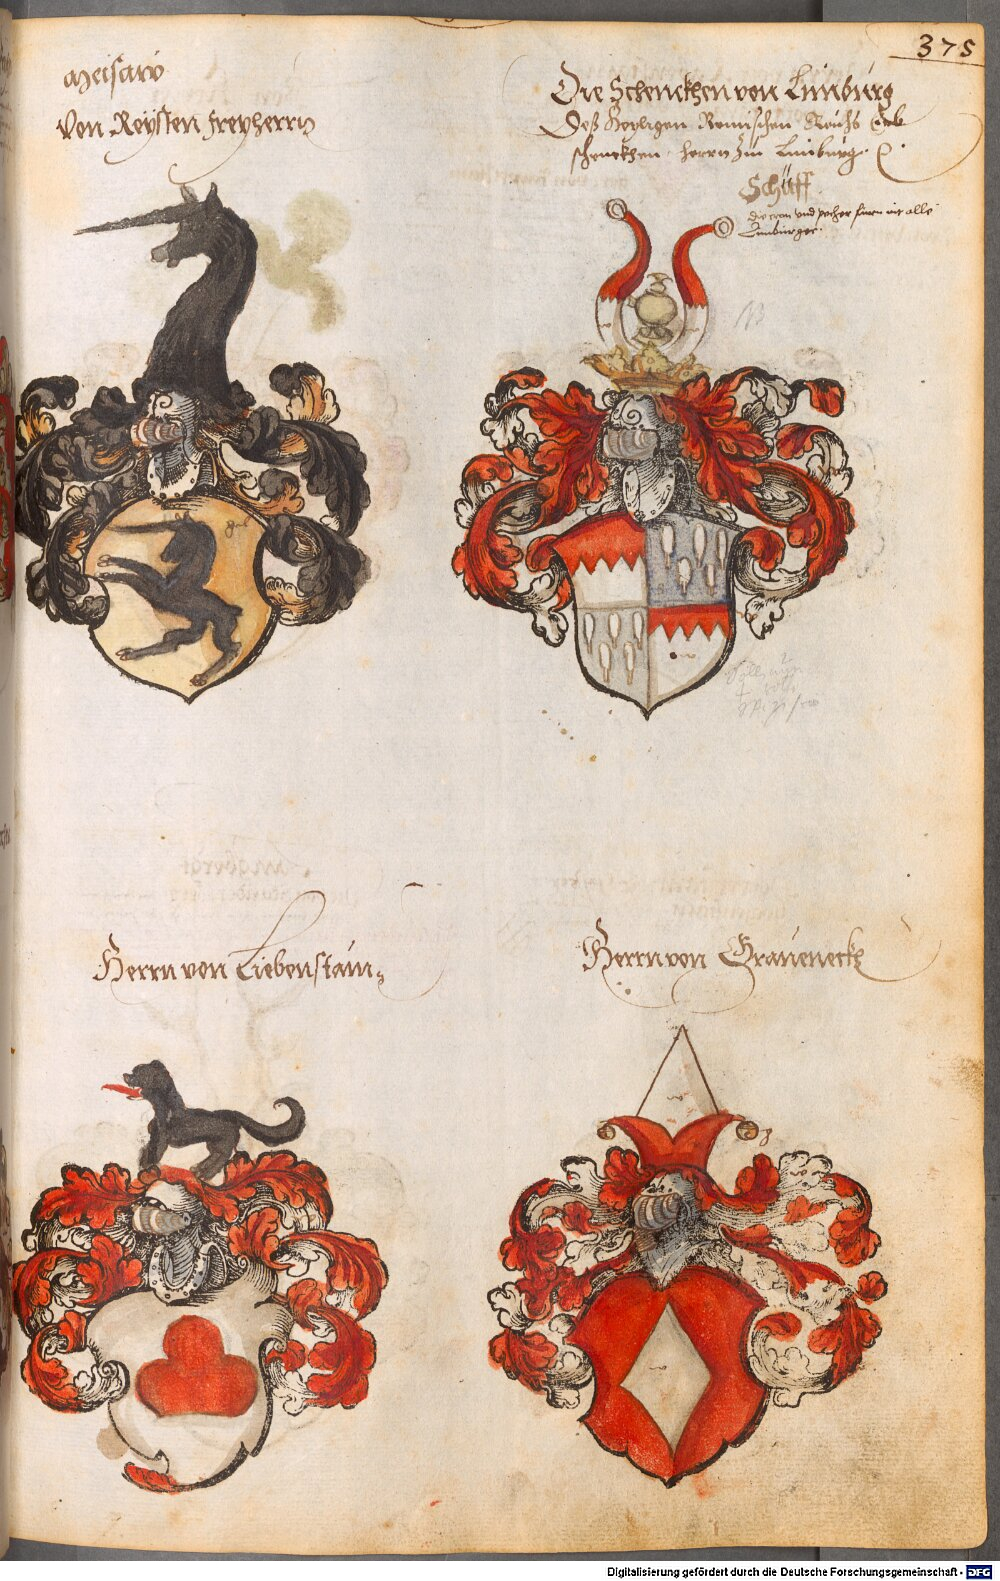 375
Von Reysten freyherrn
Die Schenckhen von Limburg
Deß Heyligen Remischen Reichs Erb
schenckhen herrn zu Limburg.
Schüff
die cron und pecher füern nit alle
Limburger.
gel
Herrn von Liebenstain
Herrn von Graueneckh
Digitalisierung gefördert durch die Deutsche Forschungsgemeinschaft - DFG